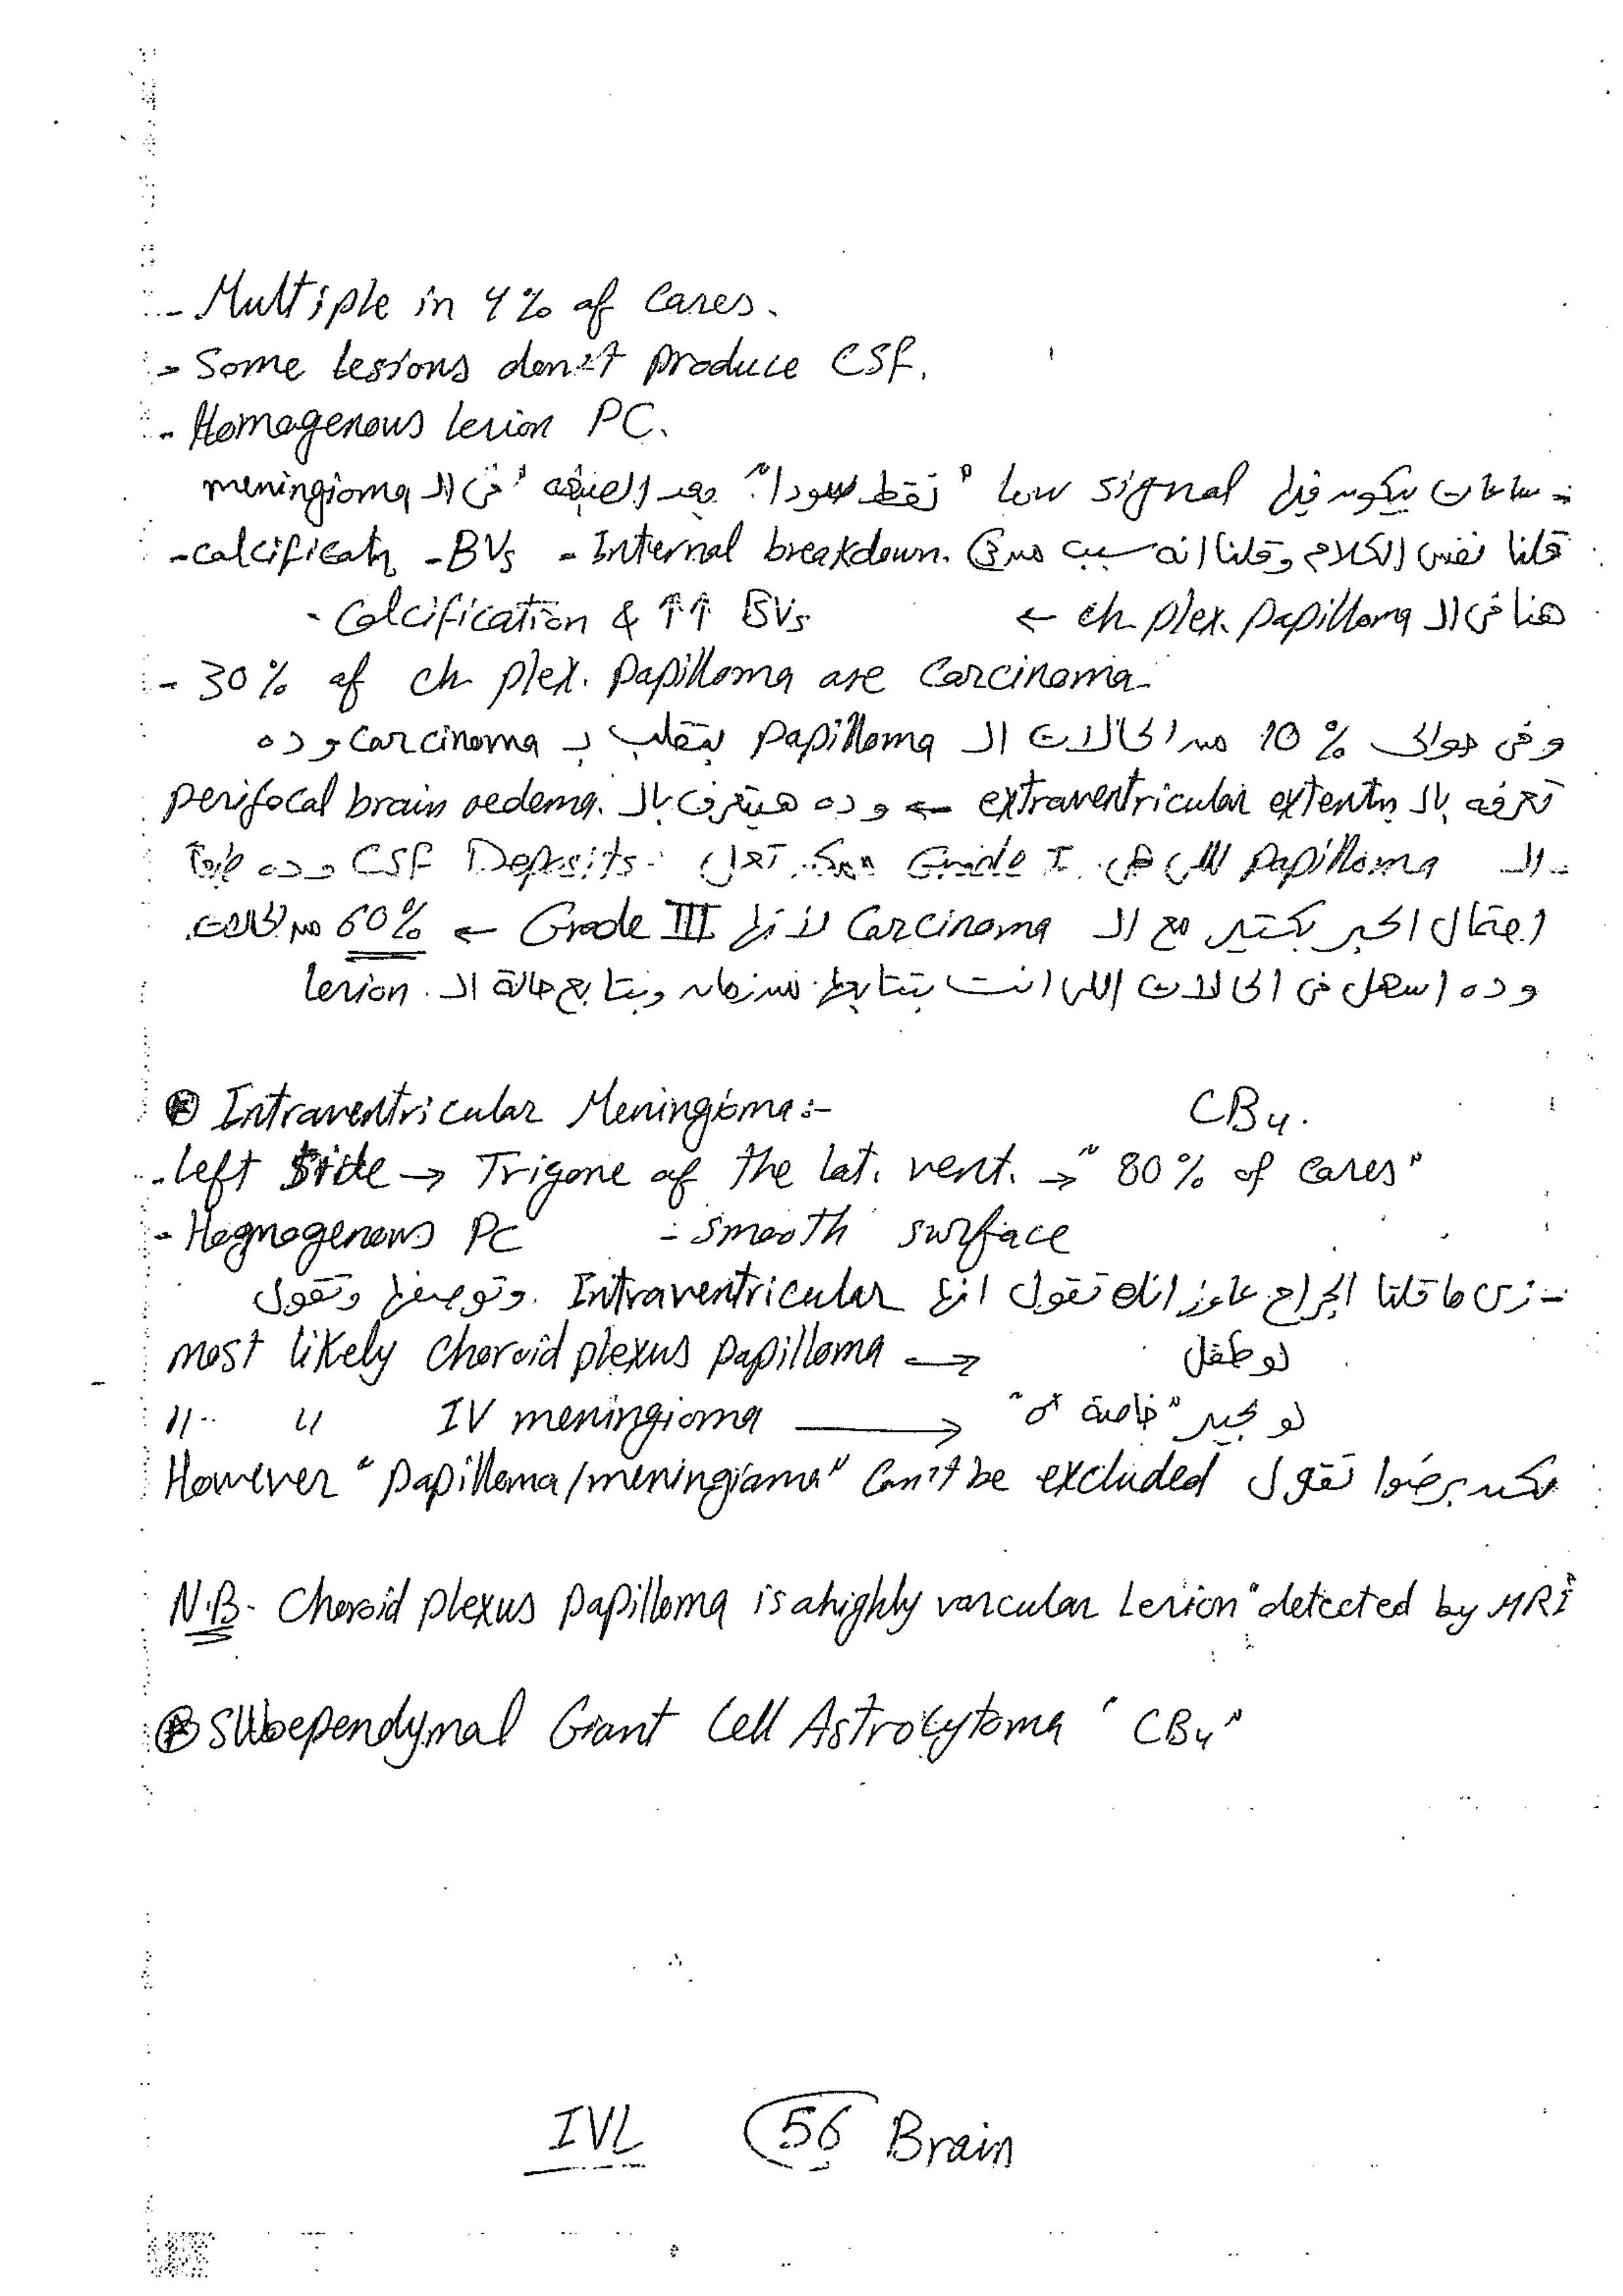 - Multiple in 4% of cases.
- Some lesions don't produce CSF.
- Homogenous lesion PC.
- ساعات بيكون فيها low signal "نقط سودا" بعد الصبغة، في الـ meningioma
قلنا نفس الكلام وقلنا انه سبب من 3 - calcificatn - BVs - Internal breakdown.
هنا في الـ ch plex. papilloma ← - Calcification & ↑↑ BVs
- 30% of ch plex. papilloma are carcinoma.
وفي حوالي 10% من الحالات الـ papilloma بتقلب بـ carcinoma وده
تعرفه بالـ extraventricular extentn ← وده هيتعرف بالـ perifocal brain oedema.
- الـ papilloma اللي هي Grade I ممكن تعمل CSF Deposits وده طبعا
احتمال اكبر بكتير مع الـ Carcinoma لأنها Grade III ← 60% من الحالات.
وده اسهل في الحالات اللي انت بتتابعها من زمان وبتتابع حالة الـ lesion.
⊛ Intraventricular Meningioma:- CB4.
- left side → Trigone of the lat. vent. → "80% of cases"
- Hogmogenous PC - smooth surface
- زي ما قلنا الجراح عاوز انك تقول انها Intraventricular. وتوصفها وتقول
most likely choroid plexus papilloma → لو طفل
〃 〃 IV meningioma → لو كبير "خاصة ♂"
ممكن برضوا تقول However "papilloma/meningioma" can't be excluded
N.B- Choroid plexus papilloma is a highly vascular Lesion "detected by MRI"
⊛ Subependymal Giant Cell Astrocytoma "CB4"
IVL 56 Brain